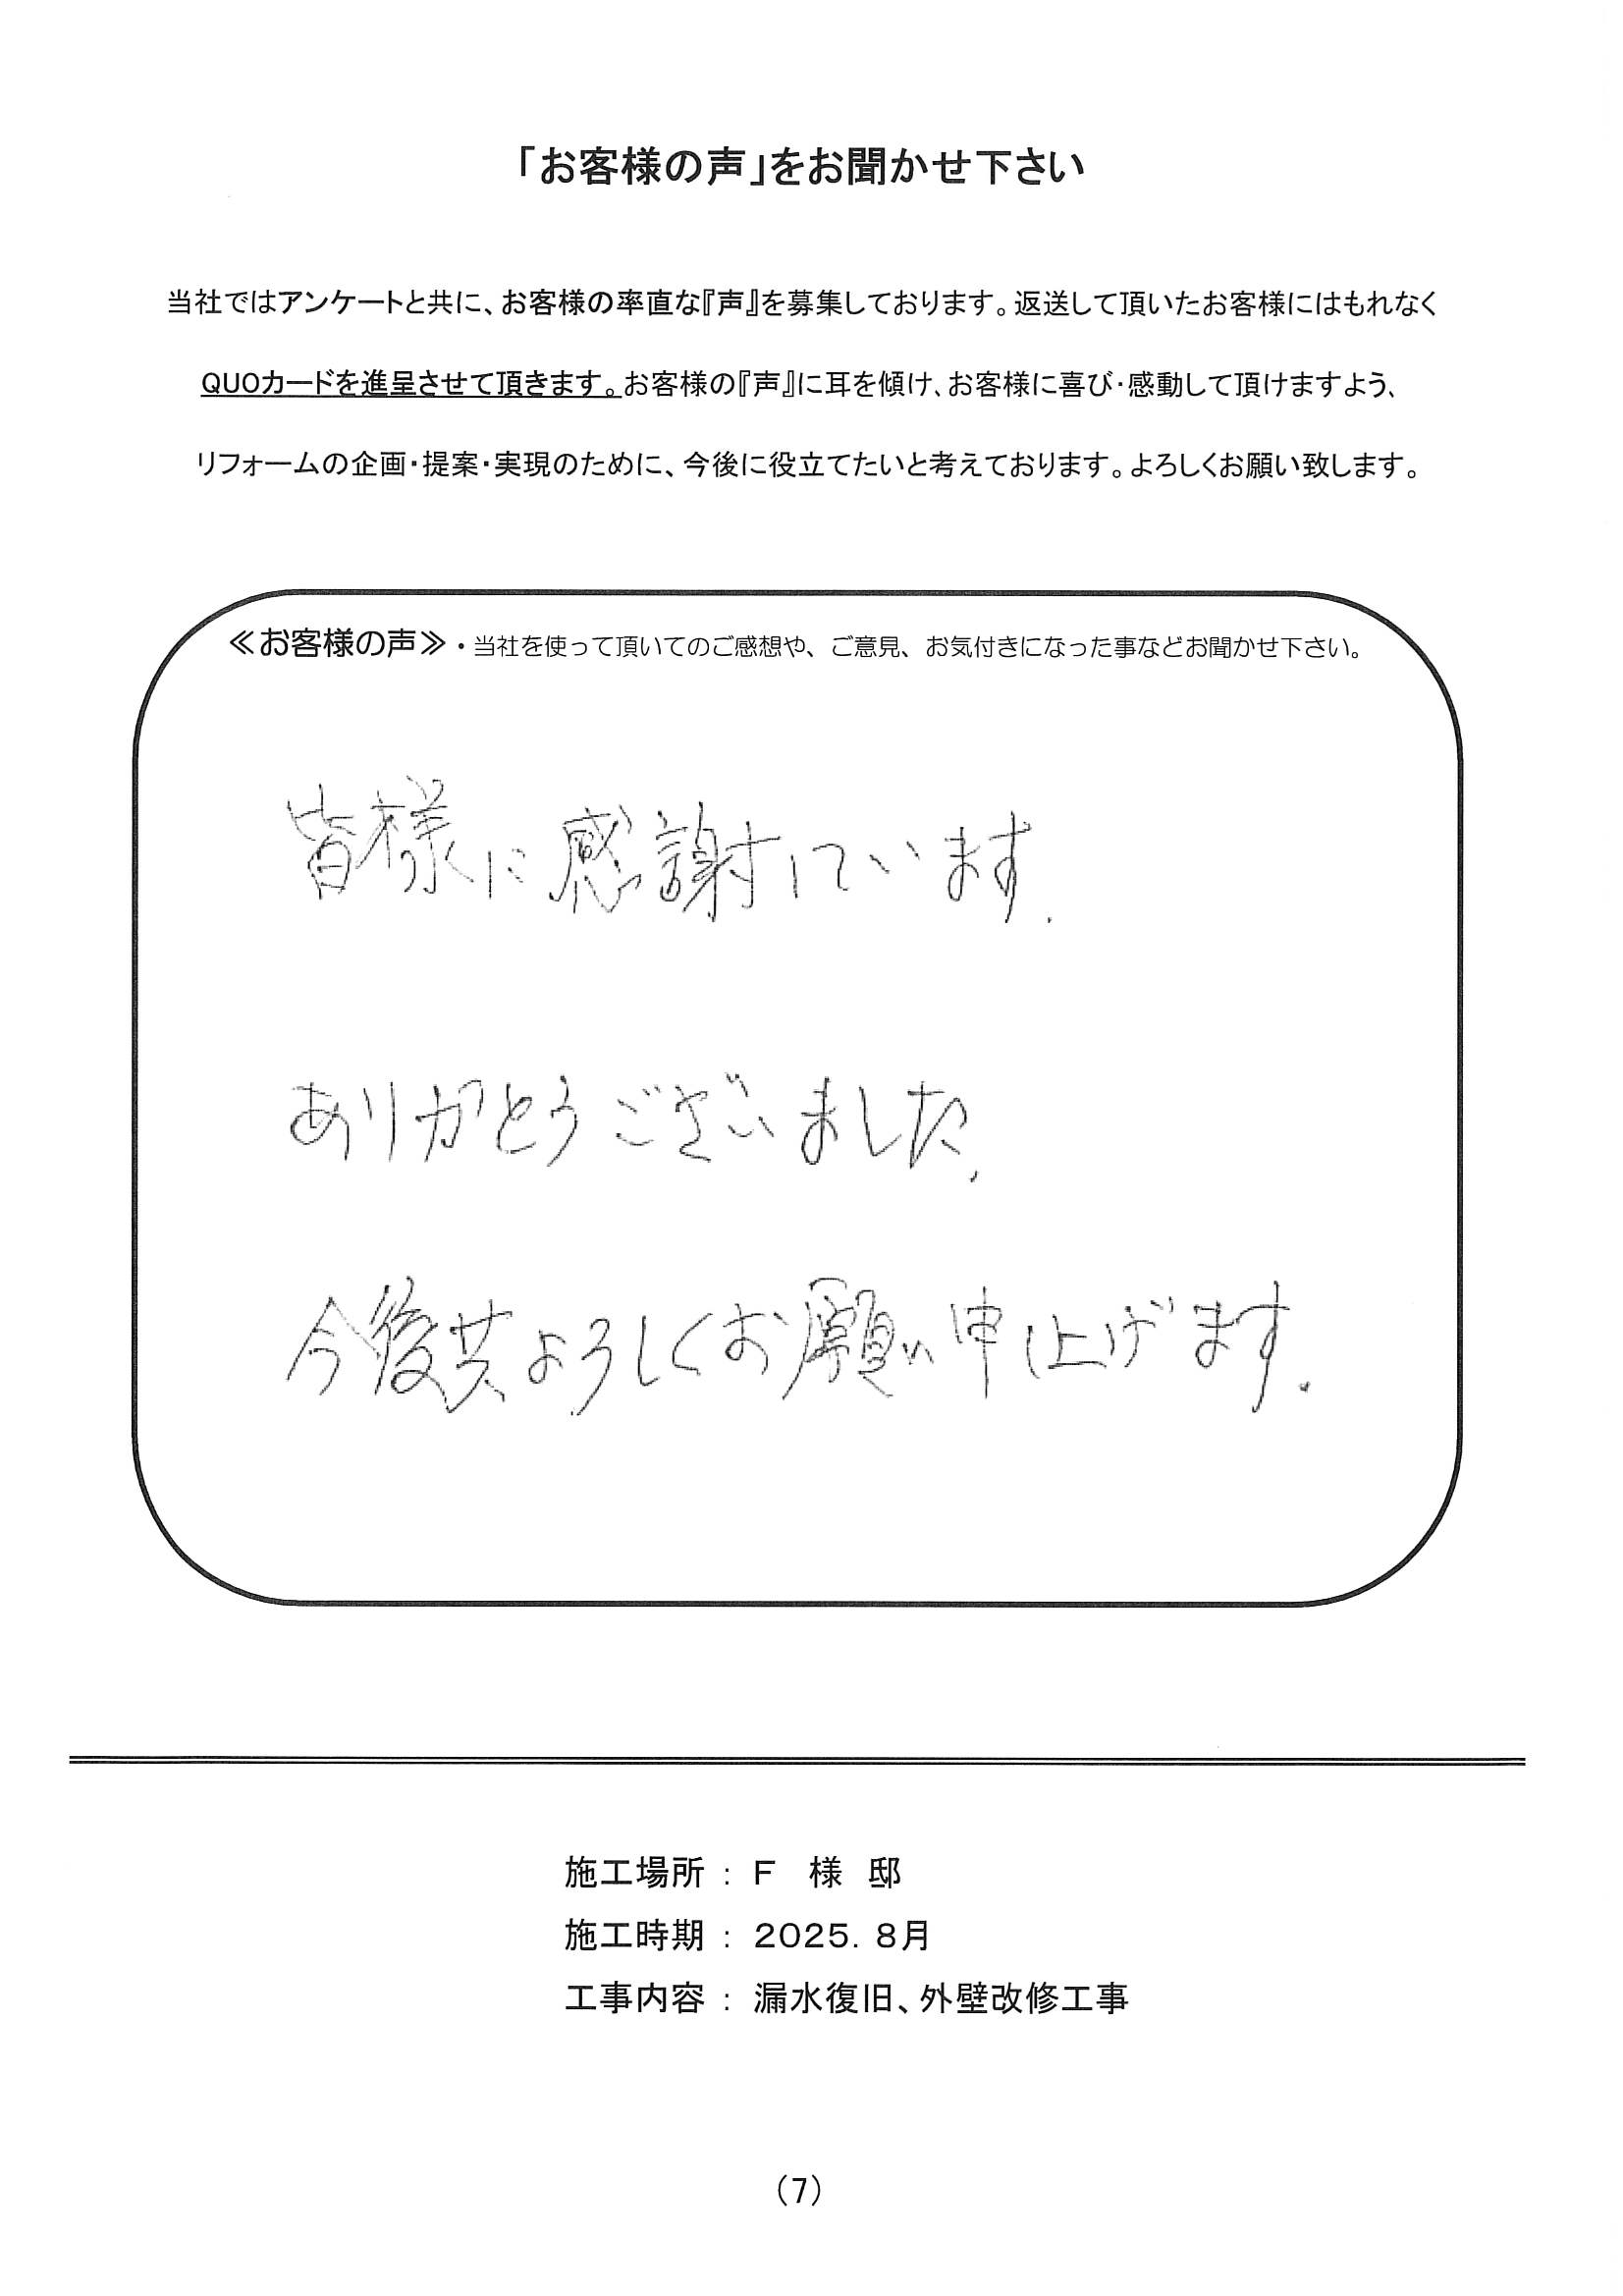 「お客様の声」をお聞かせ下さい
当社ではアンケートと共に、お客様の率直な『声』を募集しております。返送して頂いたお客様にはもれなく
QUOカードを進呈させて頂きます。お客様の『声』に耳を傾け、お客様に喜び・感動して頂けますよう、
リフォームの企画・提案・実現のために、今後に役立てたいと考えております。よろしくお願い致します。
≪お客様の声≫・当社を使って頂いてのご感想や、ご意見、お気付きになった事などお聞かせ下さい。
皆様に感謝しています.
ありがとうございました.
今後共よろしくお願い申し上げます.
施工場所 : F 様 邸
施工時期 : 2025. 8月
工事内容 : 漏水復旧、外壁改修工事
(7)